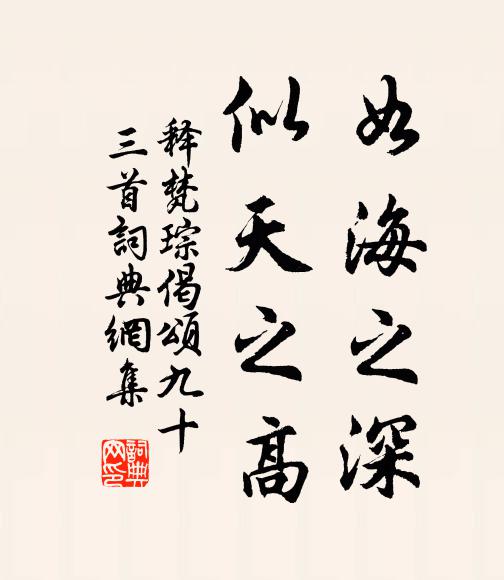 如海之深
似天之高
释梵琮偈頌九十
三首詞典網集
詞典網印